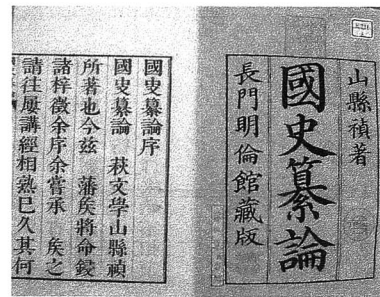 山縣禎著
國史纂論
長門明倫館藏版
國史纂論序
國史纂論　萩文學山縣禎
所著也今茲　藩矦將命鋟
諸梓徵余序余嘗承　矦之
請往屢講經相熟已久其何